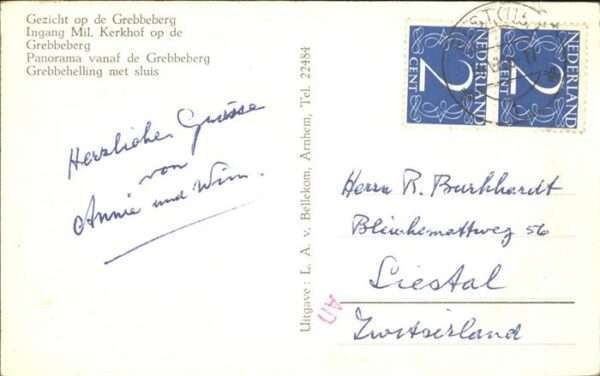 Gezicht op de Grebbeberg
Ingang Mil. Kerkhof op de
Grebbeberg
Panorama vanaf de Grebbeberg
Grebbehelling met sluis
Herzlichen Grüsse
von
Annie und Wim.
Uitgave: L. A. v. Bellekom, Arnhem, Tel. 22484
NEDERLAND
2
CENT
NEDERLAND
2
CENT
Herrn R. Burkhardt
56
Liestal
Zwitserland